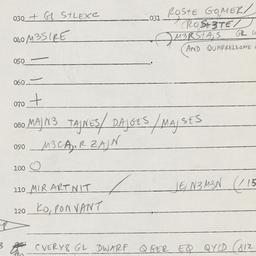 030 + GL STLEXC 031 ROSTE GOMER/
(ROSTE/
040 M3SIRE M3RSIA,S GR
(AND QUARRELSOME
050 —
060 —
070 +
080 MAJN3 TAJNES/ DAJGES /MAJSES
090 M3CA,R ZAJN
100 O
110 MIRARTNIT / JEJN3M3N (/15
120 KO,RONVANT
CVERYB GL DWARF QGER EQ QYID (d12